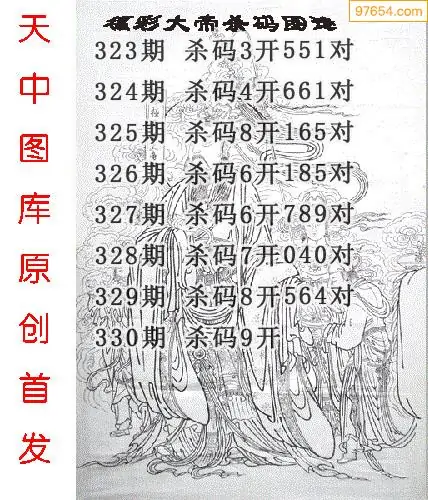 97654.com
福彩大帝杀码图迷
323期 杀码3开551对
324期 杀码4开661对
325期 杀码8开165对
326期 杀码6开185对
327期 杀码6开789对
328期 杀码7开040对
329期 杀码8开564对
330期 杀码9开
天中图库原创首发